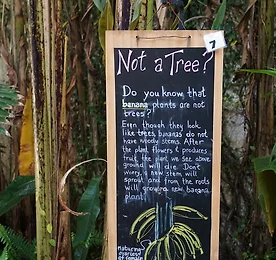 7
Not a Tree?
Do you know, that
banana plants are not
trees?
Even though they look
like trees, bananas do not
have woody stems. After
the plant flowers & produces
fruit, the plant we see above
ground will die. Don't
worry, a new stem will
sprout and from the roots
will grow a new banana
plant!
Maturing
ovaries
of female